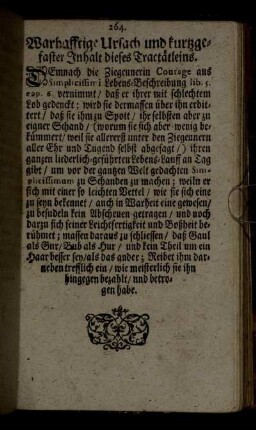 264.
Warhafftige Ursach und kurtzge-
faster Inhalt dieses Tractätleins.
DEmnach die Ziegeunerin Courage aus
Simplicissimi Lebens-Beschreibung lib. 5.
cap. 6. vernimmt / daß er ihrer mit schlechtem
Lob gedenckt; wird sie dermassen über ihn erbit-
tert / daß sie ihm zu Spott / ihr selbsten aber zu
eigner Schand / (worum sie sich aber wenig be-
kümmert / weil sie allererst unter den Ziegeunern
aller Ehr und Tugend selbst abgesagt /) ihren
gantzen liederlich-geführten Lebens-Lauff an Tag
gibt / um vor der gantzen Welt gedachten Sim-
plicissimum zu Schanden zu machen; weiln er
sich mit einer so leichten Vettel / wie sie sich eine
zu seyn bekennet / auch in Warheit eine gewesen /
zu besudeln kein Abscheuen getragen / und noch
darzu sich seiner Leichtfertigkeit und Boßheit be-
rühmet; massen daraus zu schliessen / daß Gaul
als Gur / Bub als Hur / und kein Theil um ein
Haar besser sey / als das ander; Reibet ihm dar-
neben trefflich ein / wie meisterlich sie ihn
hingegen bezahlt / und betro-
gen habe.